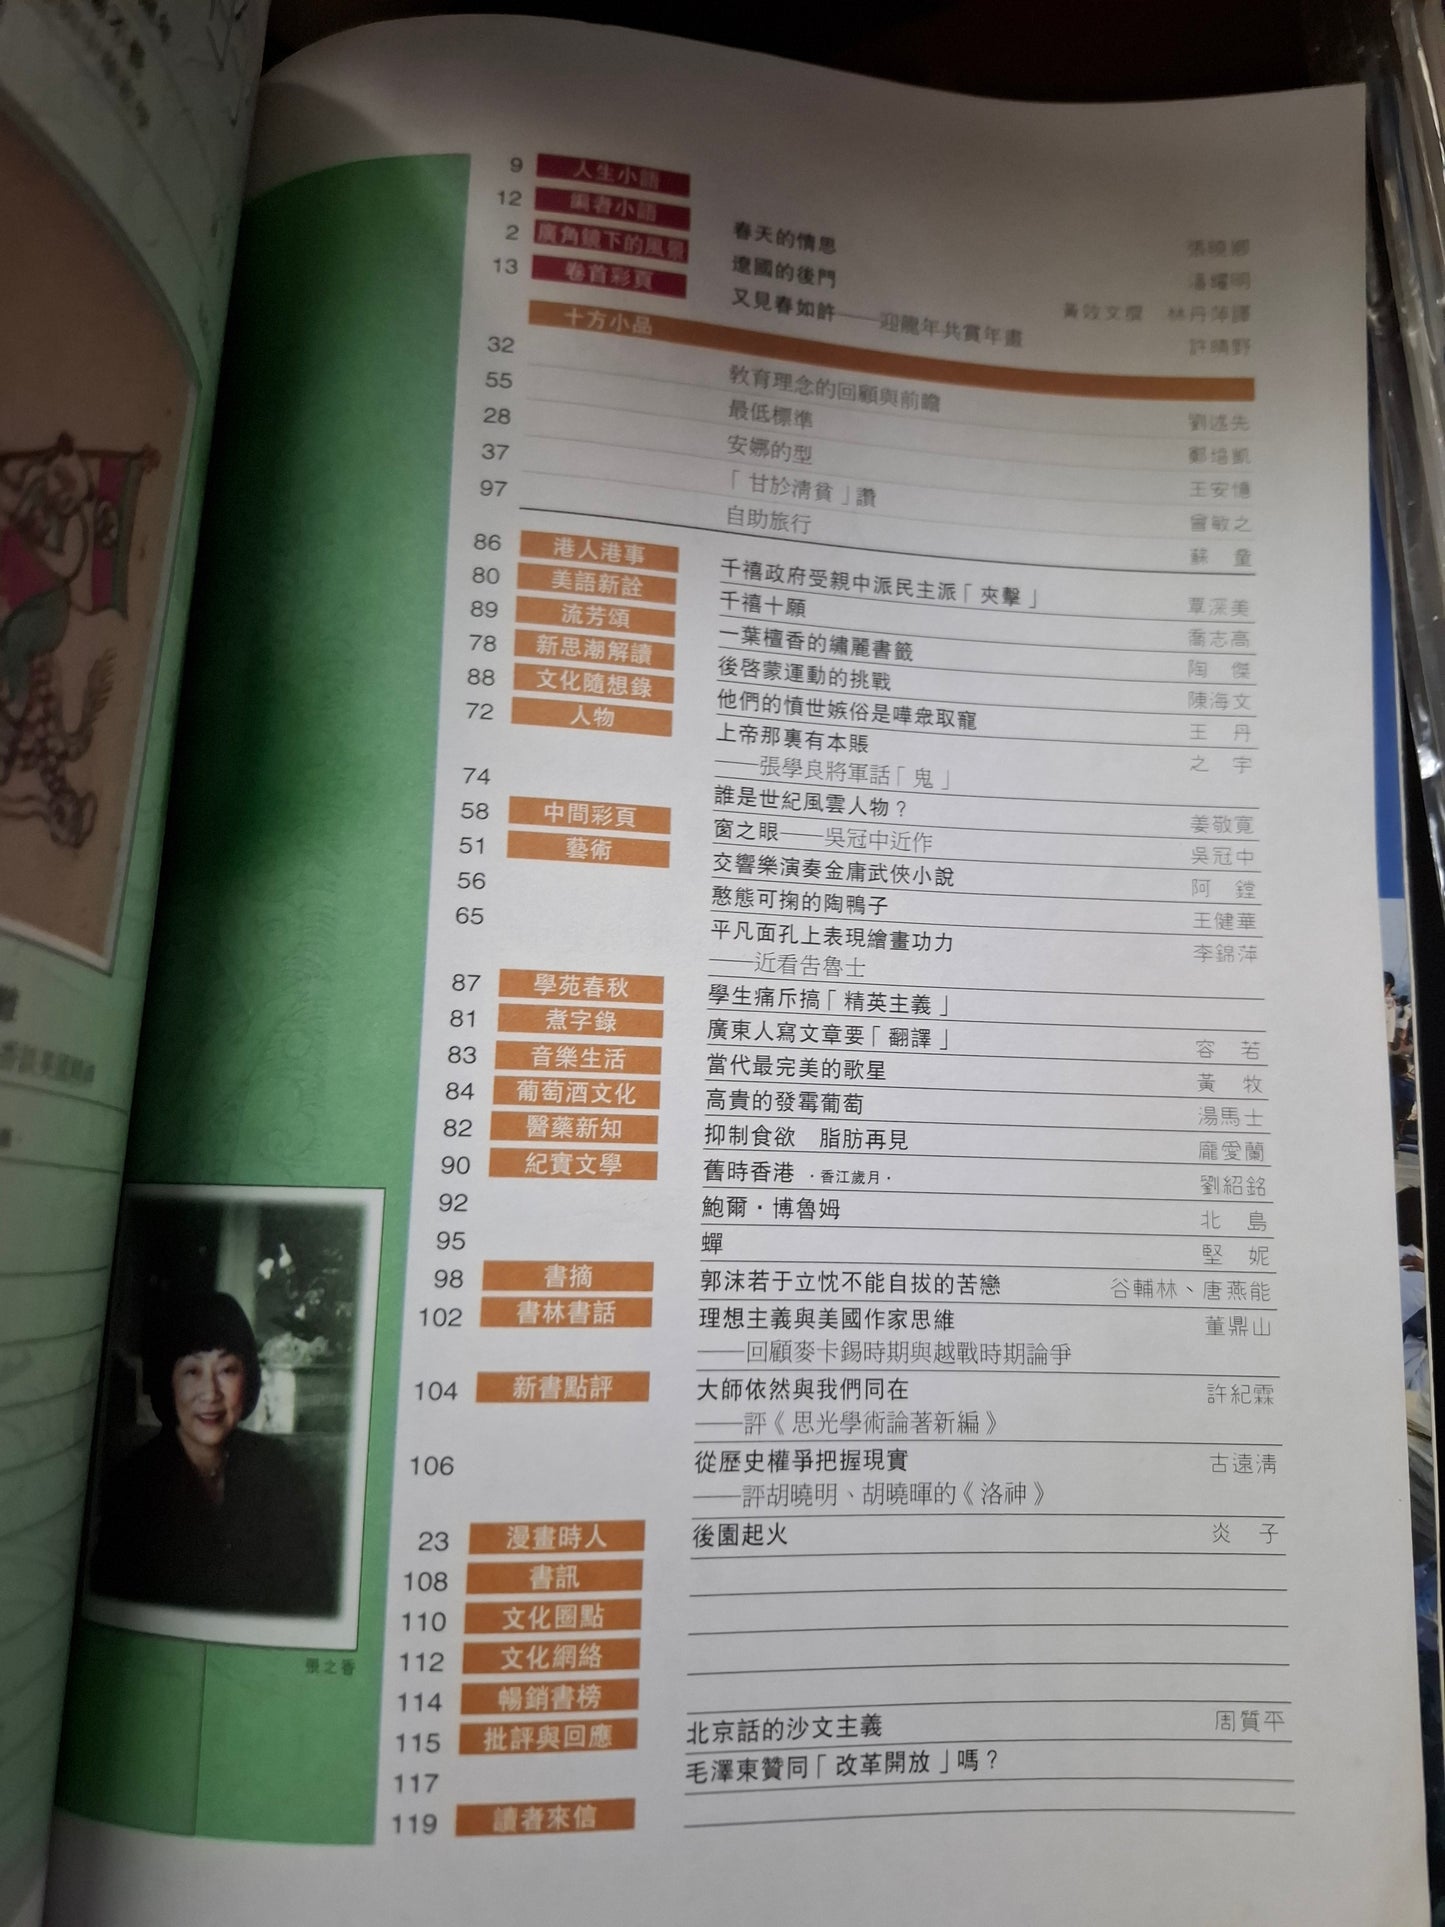 9 人生小語 春天的情思 張曉卿
12 編者小語 遼國的後門 潘耀明
2 廣角鏡下的風景 又見春如許——迎龍年共賞年畫 黃效文撰 林丹萍譯
13 卷首彩頁 許晴野
十方小品
32 教育理念的回顧與前瞻 劉述先
55 最低標準 鄭培凱
28 安娜的型 王安憶
37 「甘於清貧」讚 曾敏之
97 自助旅行 蘇 童
86 港人港事 千禧政府受親中派民主派「夾擊」 覃深美
80 美語新詮 千禧十願 喬志高
89 流芳頌 一葉檀香的繡麗書籤 陶 傑
78 新思潮解讀 後啓蒙運動的挑戰 陳海文
88 文化隨想錄 他們的憤世嫉俗是嘩衆取寵 王 丹
72 人物 上帝那裏有本賬 之 宇
——張學良將軍話「鬼」
74 誰是世紀風雲人物？ 姜敬寬
58 中間彩頁 窗之眼——吳冠中近作 吳冠中
51 藝術 交響樂演奏金庸武俠小說 阿 鏜
56 憨態可掬的陶鴨子 王健華
65 平凡面孔上表現繪畫功力 李錦萍
——近看告魯士
87 學苑春秋 學生痛斥搞「精英主義」 容 若
81 煮字錄 廣東人寫文章要「翻譯」 黃 牧
83 音樂生活 當代最完美的歌星 湯馬士
84 葡萄酒文化 高貴的發霉葡萄 龐愛蘭
82 醫藥新知 抑制食欲 脂肪再見 劉紹銘
90 紀實文學 舊時香港 ·香江歲月· 北 島
92 鮑爾·博魯姆 堅 妮
95 蟬
98 書摘 郭沫若于立忱不能自拔的苦戀 谷輔林、唐燕能
102 書林書話 理想主義與美國作家思維 董鼎山
——回顧麥卡錫時期與越戰時期論爭
104 新書點評 大師依然與我們同在 許紀霖
——評《思光學術論著新編》
106 從歷史權爭把握現實 古遠清
——評胡曉明、胡曉暉的《洛神》
23 漫畫時人 後園起火 炎 子
108 書訊
110 文化圈點
112 文化網絡
114 暢銷書榜
115 批評與回應 北京話的沙文主義 周質平
117 毛澤東贊同「改革開放」嗎？
119 讀者來信
張之香